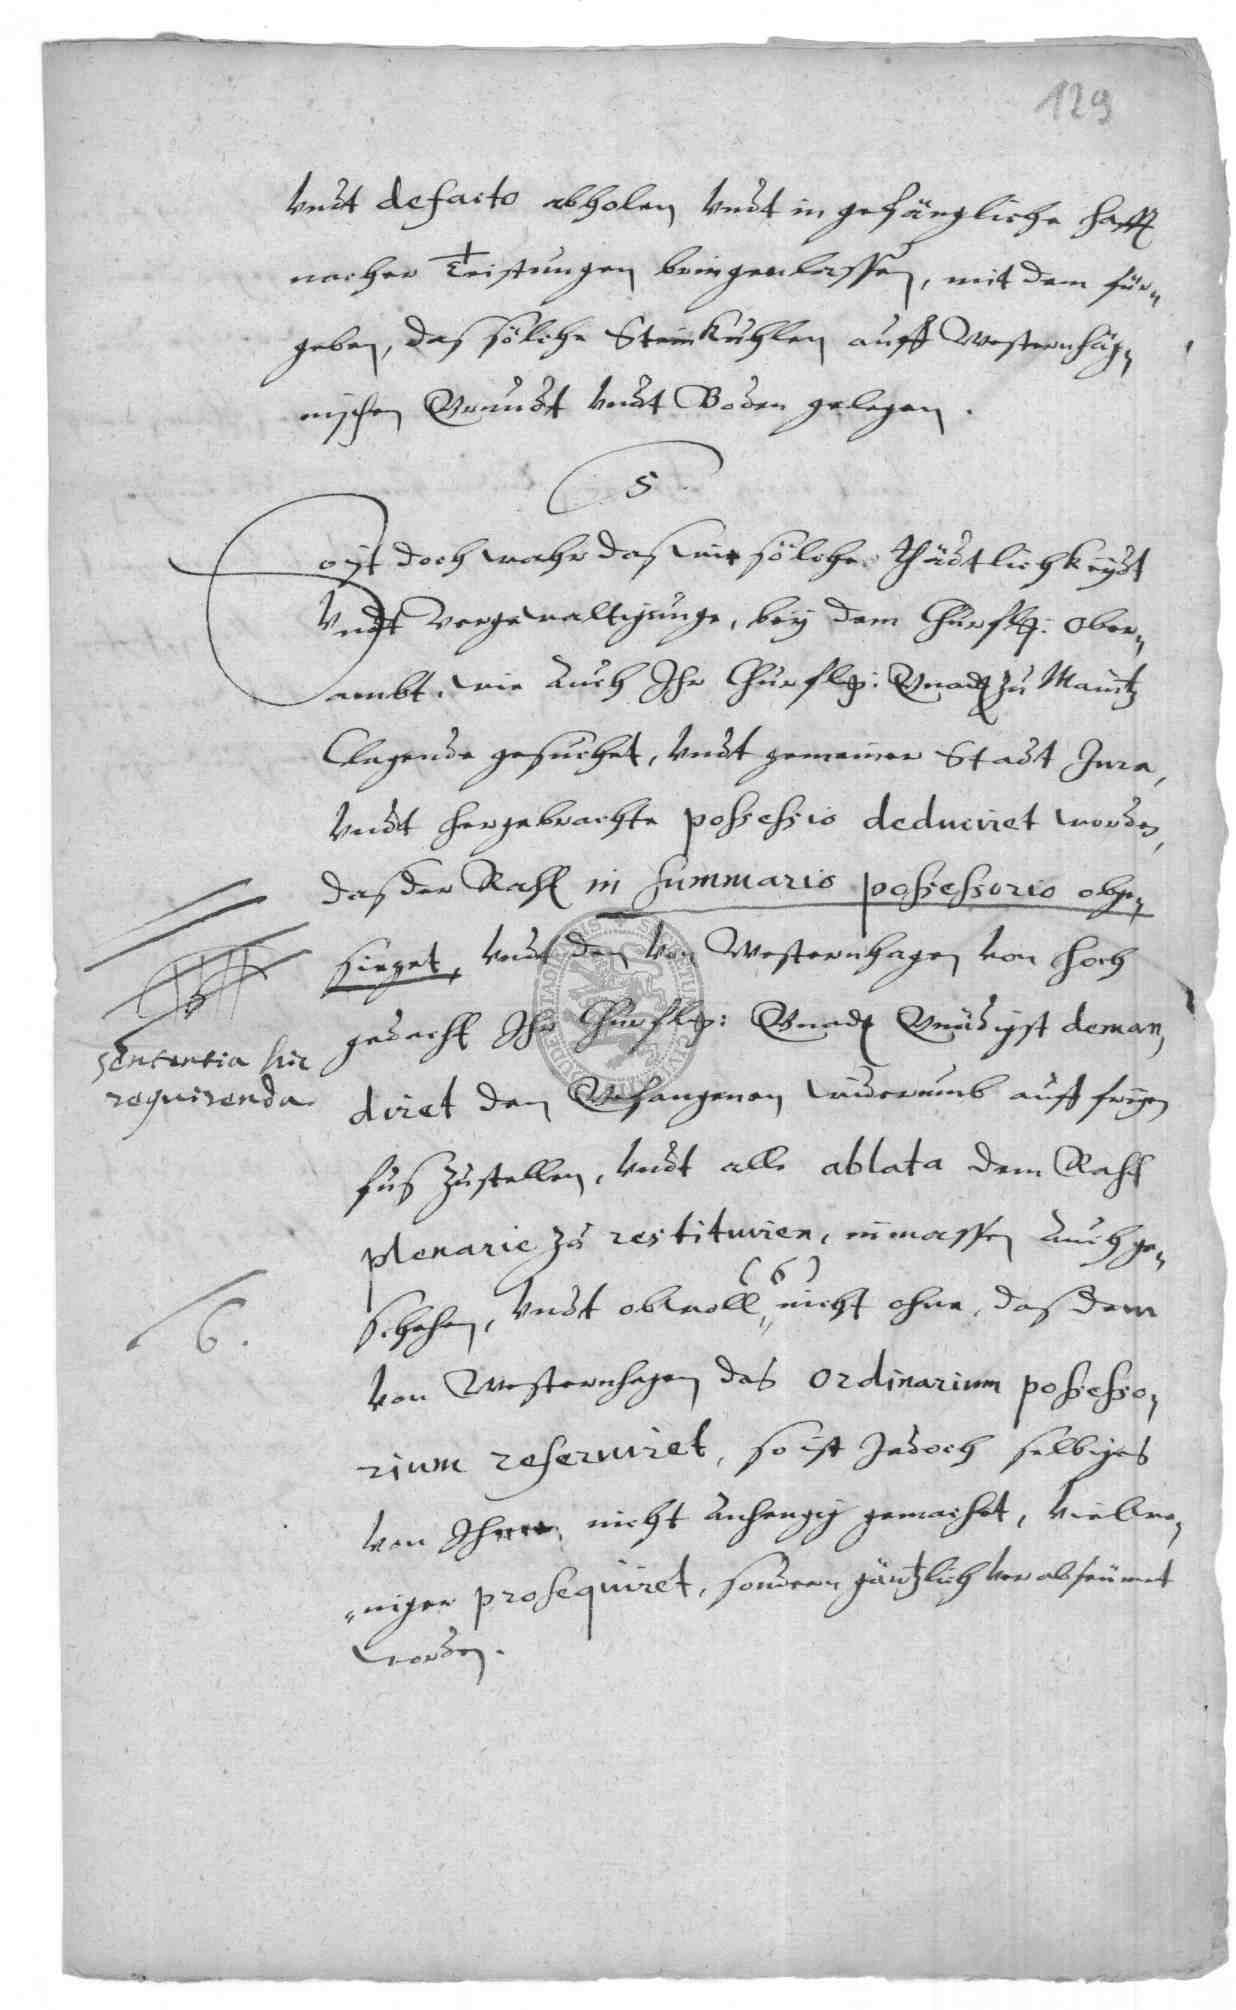 129
vndt de facto abholen vndt in gefängliche hafft
nacher Teistungen bringen lassen, mit dem für„
geben, das sölche Steinkuhlen auff Westernhäg„
nischen Grundt vndt Boden gelegen.
5
Ist doch wahr das sölche Thädtlichkeydt
vndt vergewaltigunge, bey dem Churflg: Ober„
ambt, wie auch Ihr Churflg: Gnad zu Maintz
Clagende gesuchet, vndt gemeiner Stadt Jura,
vndt hergebrachte possessio deduciret worden,
das der Raht in summario possessorio obge„
sieget, vndt den von Westernhagen von hoch
gedacht Ihr Churflg: Gnad Gnädigst deman„
diret den Gefangenen widerumb auff freyen
fus zustellen, vndt alle ablata dem Raht
plenarie zu restituiren, inmassen auch ge„
schehen, vndt obwoll (6) nicht ohne, das dem
von Westernhagen das ordinarium possesso„
rium reserviret, so ist Jedoch selbiges
von Ihme nicht anhengig gemachet, vielwe„
niger prosequiret, sondern gäntzlich verabseumet
worden.
sententia hic
requirenda
6.